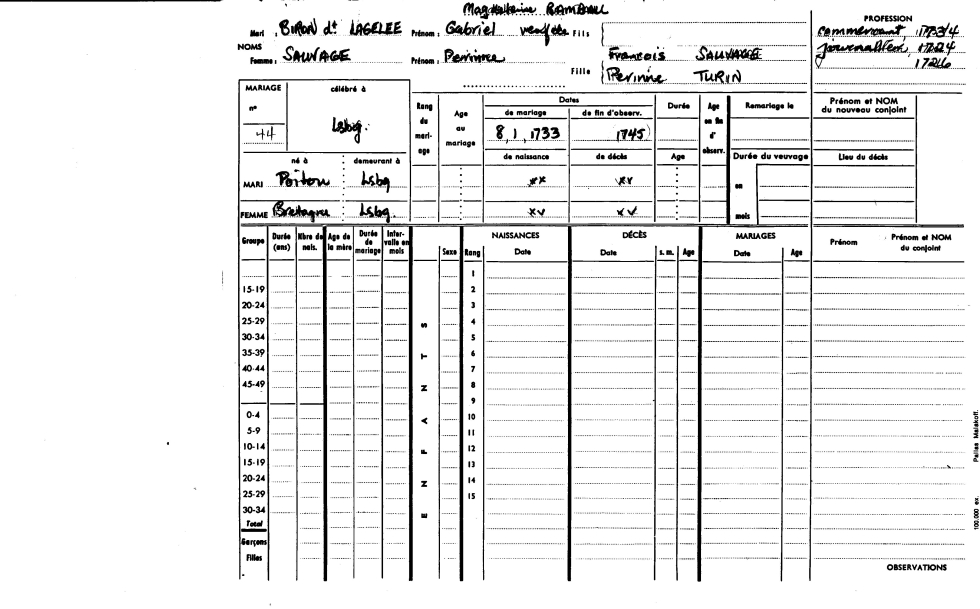 Magdeleine RAMBAUL
Mari : BIRON dt LAGELEE Prénom : Gabriel veuf de Fils
PROFESSION
commercant, 1733/4
journallem 1724
1726
NOMS
Femme : SAUVAGE Prénom : Perinne Fille
Francois SAUVAGE
Perinne TURIN
MARIAGE célébré à
n° 44 Lsbg.
Rang du mariage
Age au mariage
Dates
de mariage de fin d'observ.
8, 1, 1733 1745
Durée
Age en fin d'observ.
Remariage le
Prénom et NOM du nouveau conjoint
né à demeurant à
de naissance de décès Age Durée du veuvage Lieu du décès
MARI Poitou Lsbg xx xx en
FEMME Bretagne Lsbg. xx xx mois
Groupe Durée (ans) Nbre de nais. Age de la mère Durée de mariage Intervalle en mois Sexe Rang
NAISSANCES DÉCÈS MARIAGES
Date Date s. m. Age Date Age Prénom Prénom et NOM du conjoint
ENFANTS
1
15-19 2
20-24 3
25-29 4
30-34 5
35-39 6
40-44 7
45-49 8
9
0-4 10
5-9 11
10-14 12
15-19 13
20-24 14
25-29 15
30-34
Total
Garçons
Filles
OBSERVATIONS
100.000 ex. Paillas Malakoff.